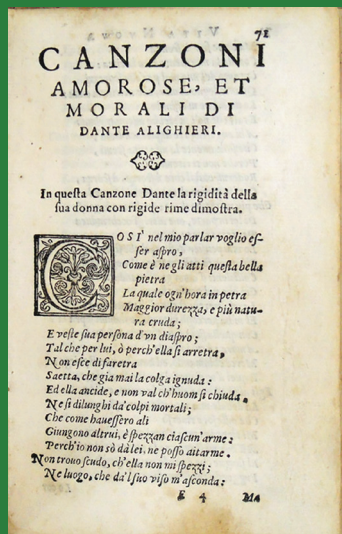 71
CANZONI
AMOROSE, ET
MORALI DI
DANTE ALIGHIERI.
In questa Canzone Dante la rigidità della
sua donna con rigide rime dimostra.
COSI' nel mio parlar voglio es-
ser aspro,
Come è negli atti questa bella
pietra
La quale ogn'hora in petra
Maggior durezza, e più natu-
ra cruda;
E veste sua persona d'vn diaspro;
Tal che per lui, ò perch'ella si arretra,
Non esce di faretra
Saetta, che gia mai la colga ignuda:
Ed ella ancide, e non val ch'huom si chiuda,
Ne si dilunghi da' colpi mortali;
Che come hauessero ali
Giungono altrui, e spezzan ciascun'arme:
Perch'io non sò dà lei, ne posso aitarme.
Non trouo scudo, ch'ella non mi spezzi;
Ne luogo, che da'l suo viso m'asconda:
E 4 Ma